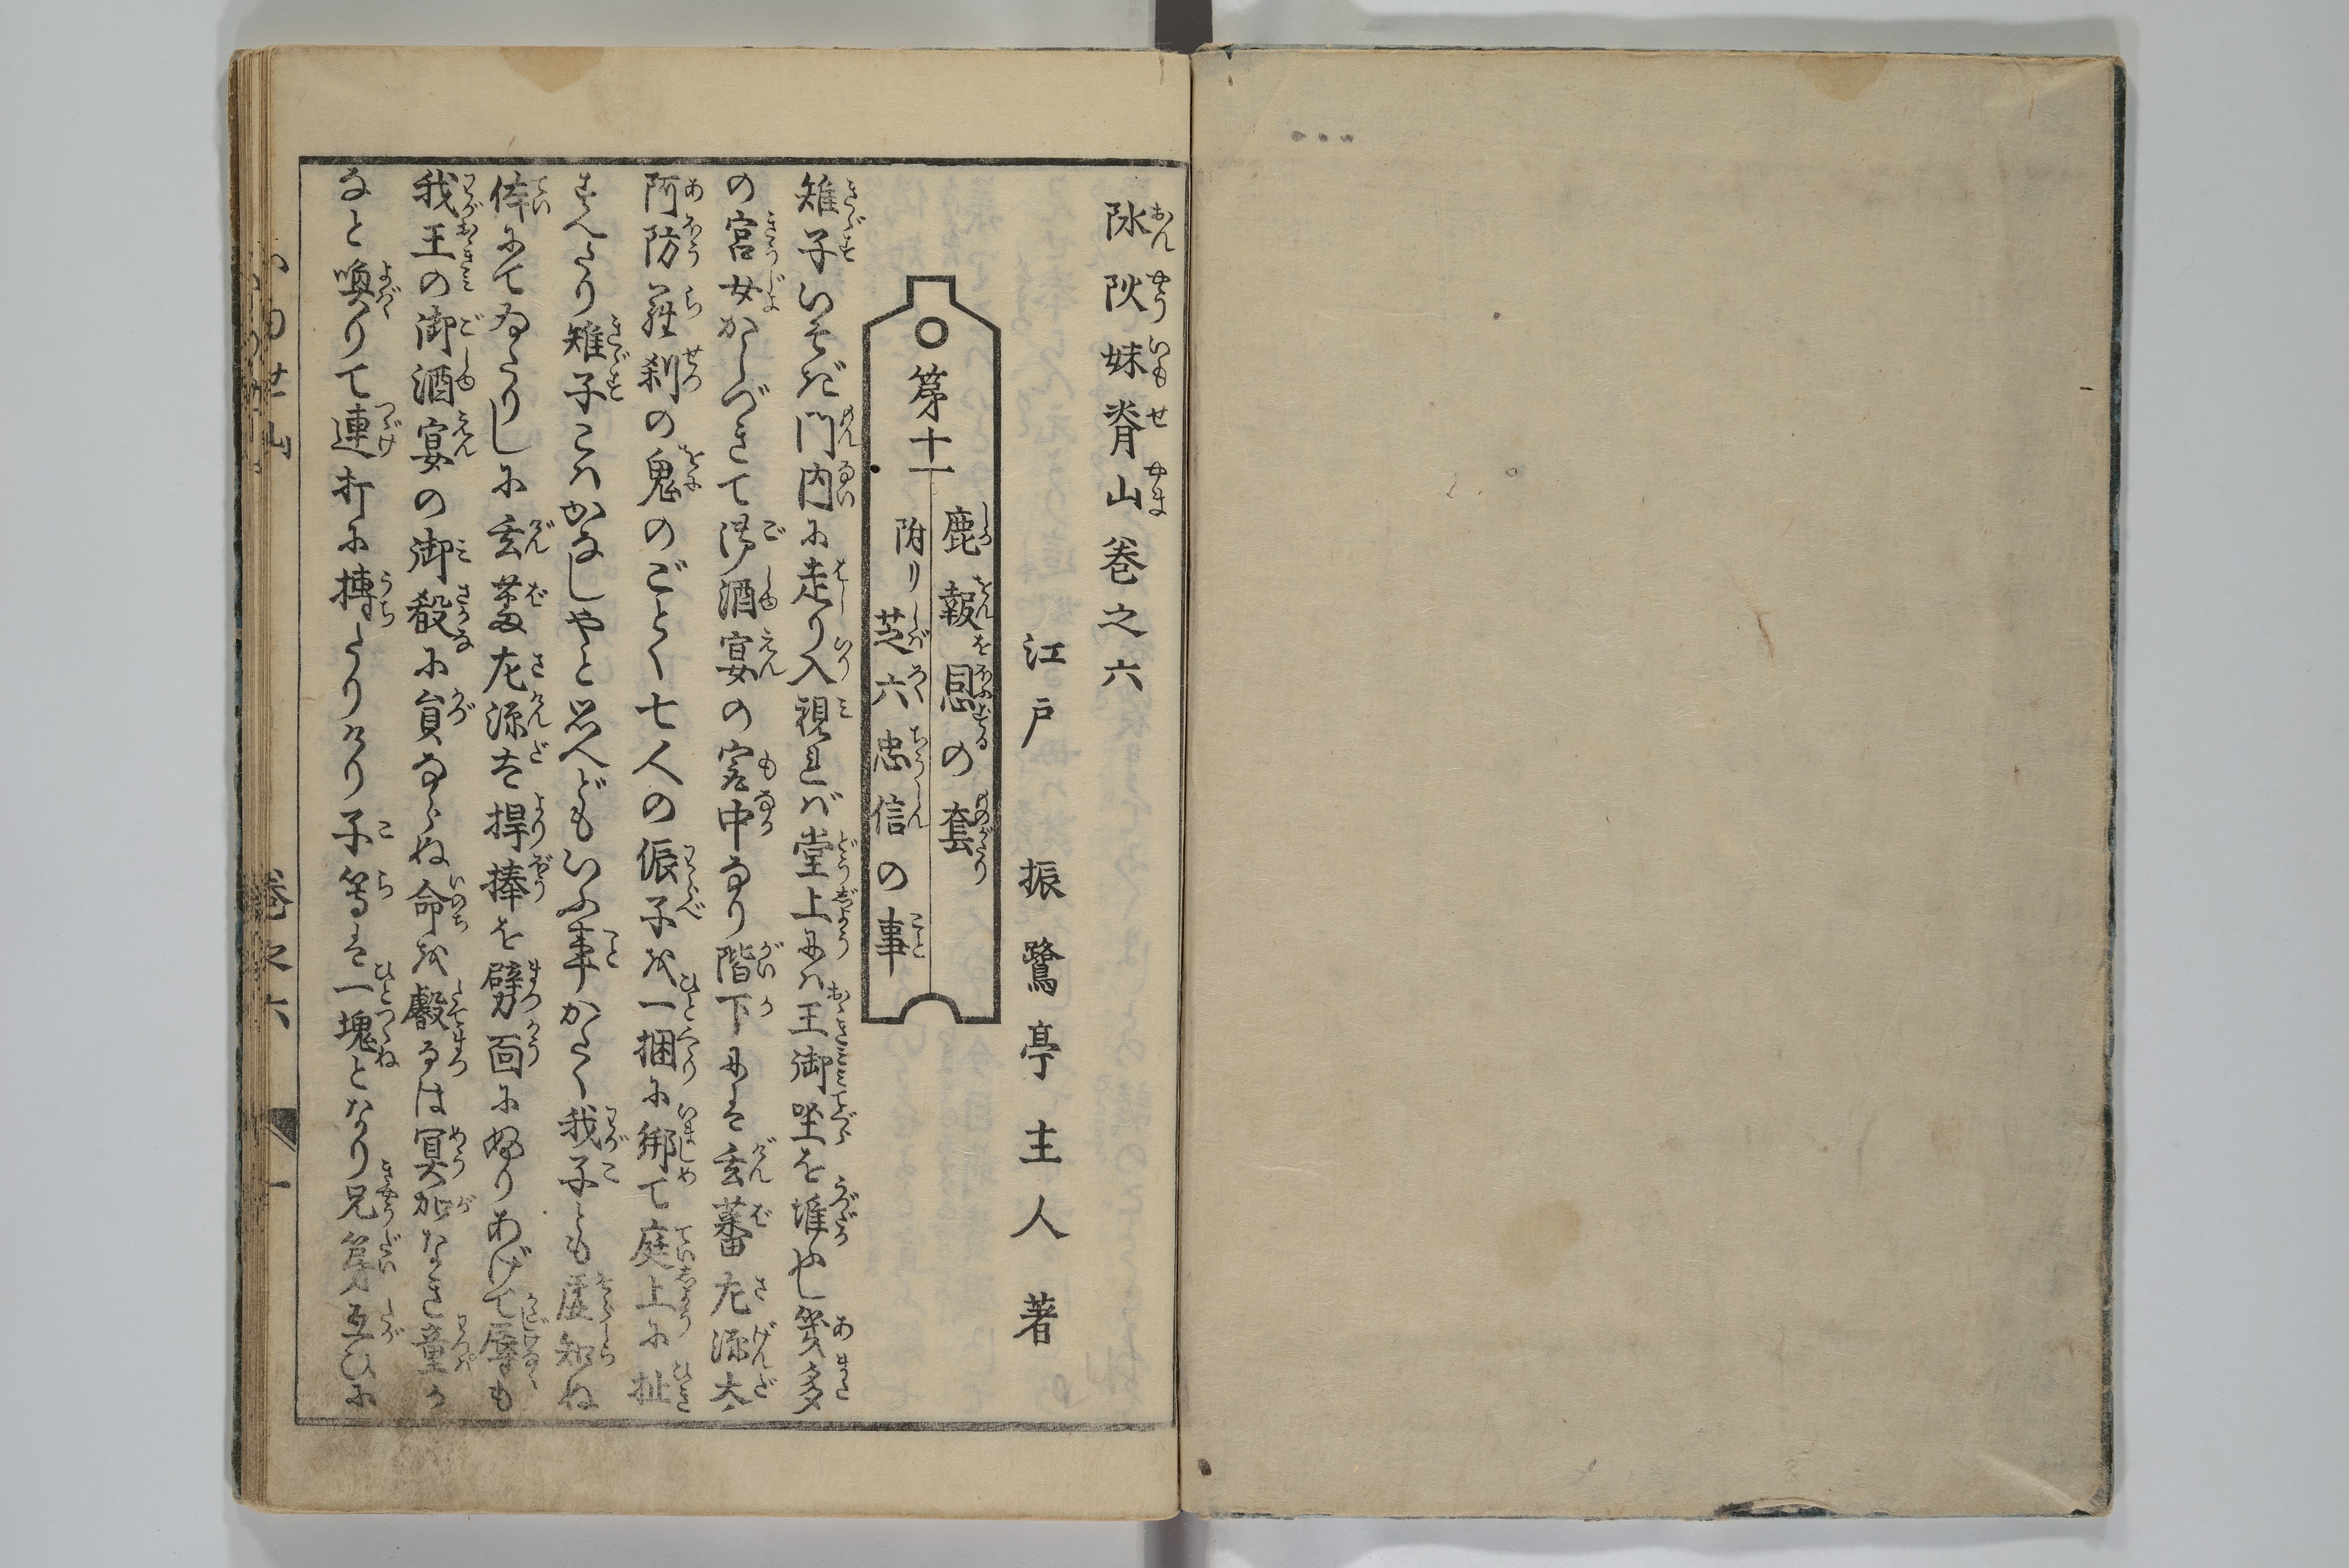 㕂㕁妹脊山巻之六
江戸 振鷺亭主人著
第十一
鹿報を恩の套
附り芝六忠信の事
雉子いそぎ門内に走り入視れバ堂上にハ王御坐を堆やし幾多
の宮女かしづきて御酒宴の宴中なり階下にハ玄蕃左源太
阿防羅刹の鬼のごとく七人の侲子を一捆に綁て庭上に扯
すへたり雉子こハかなしやと思へどもいふ事かたく我子とも虚知ぬ
体にてゐたりしに玄蕃左源太桿捧を劈面にふりあげて辱も
我王の御酒宴の御殽に員ならぬ命を觳るは冥加なき童か
なと喚りて連打に摶たりけり子等ハ一塊となり兄弟互ひに
巻之六 一